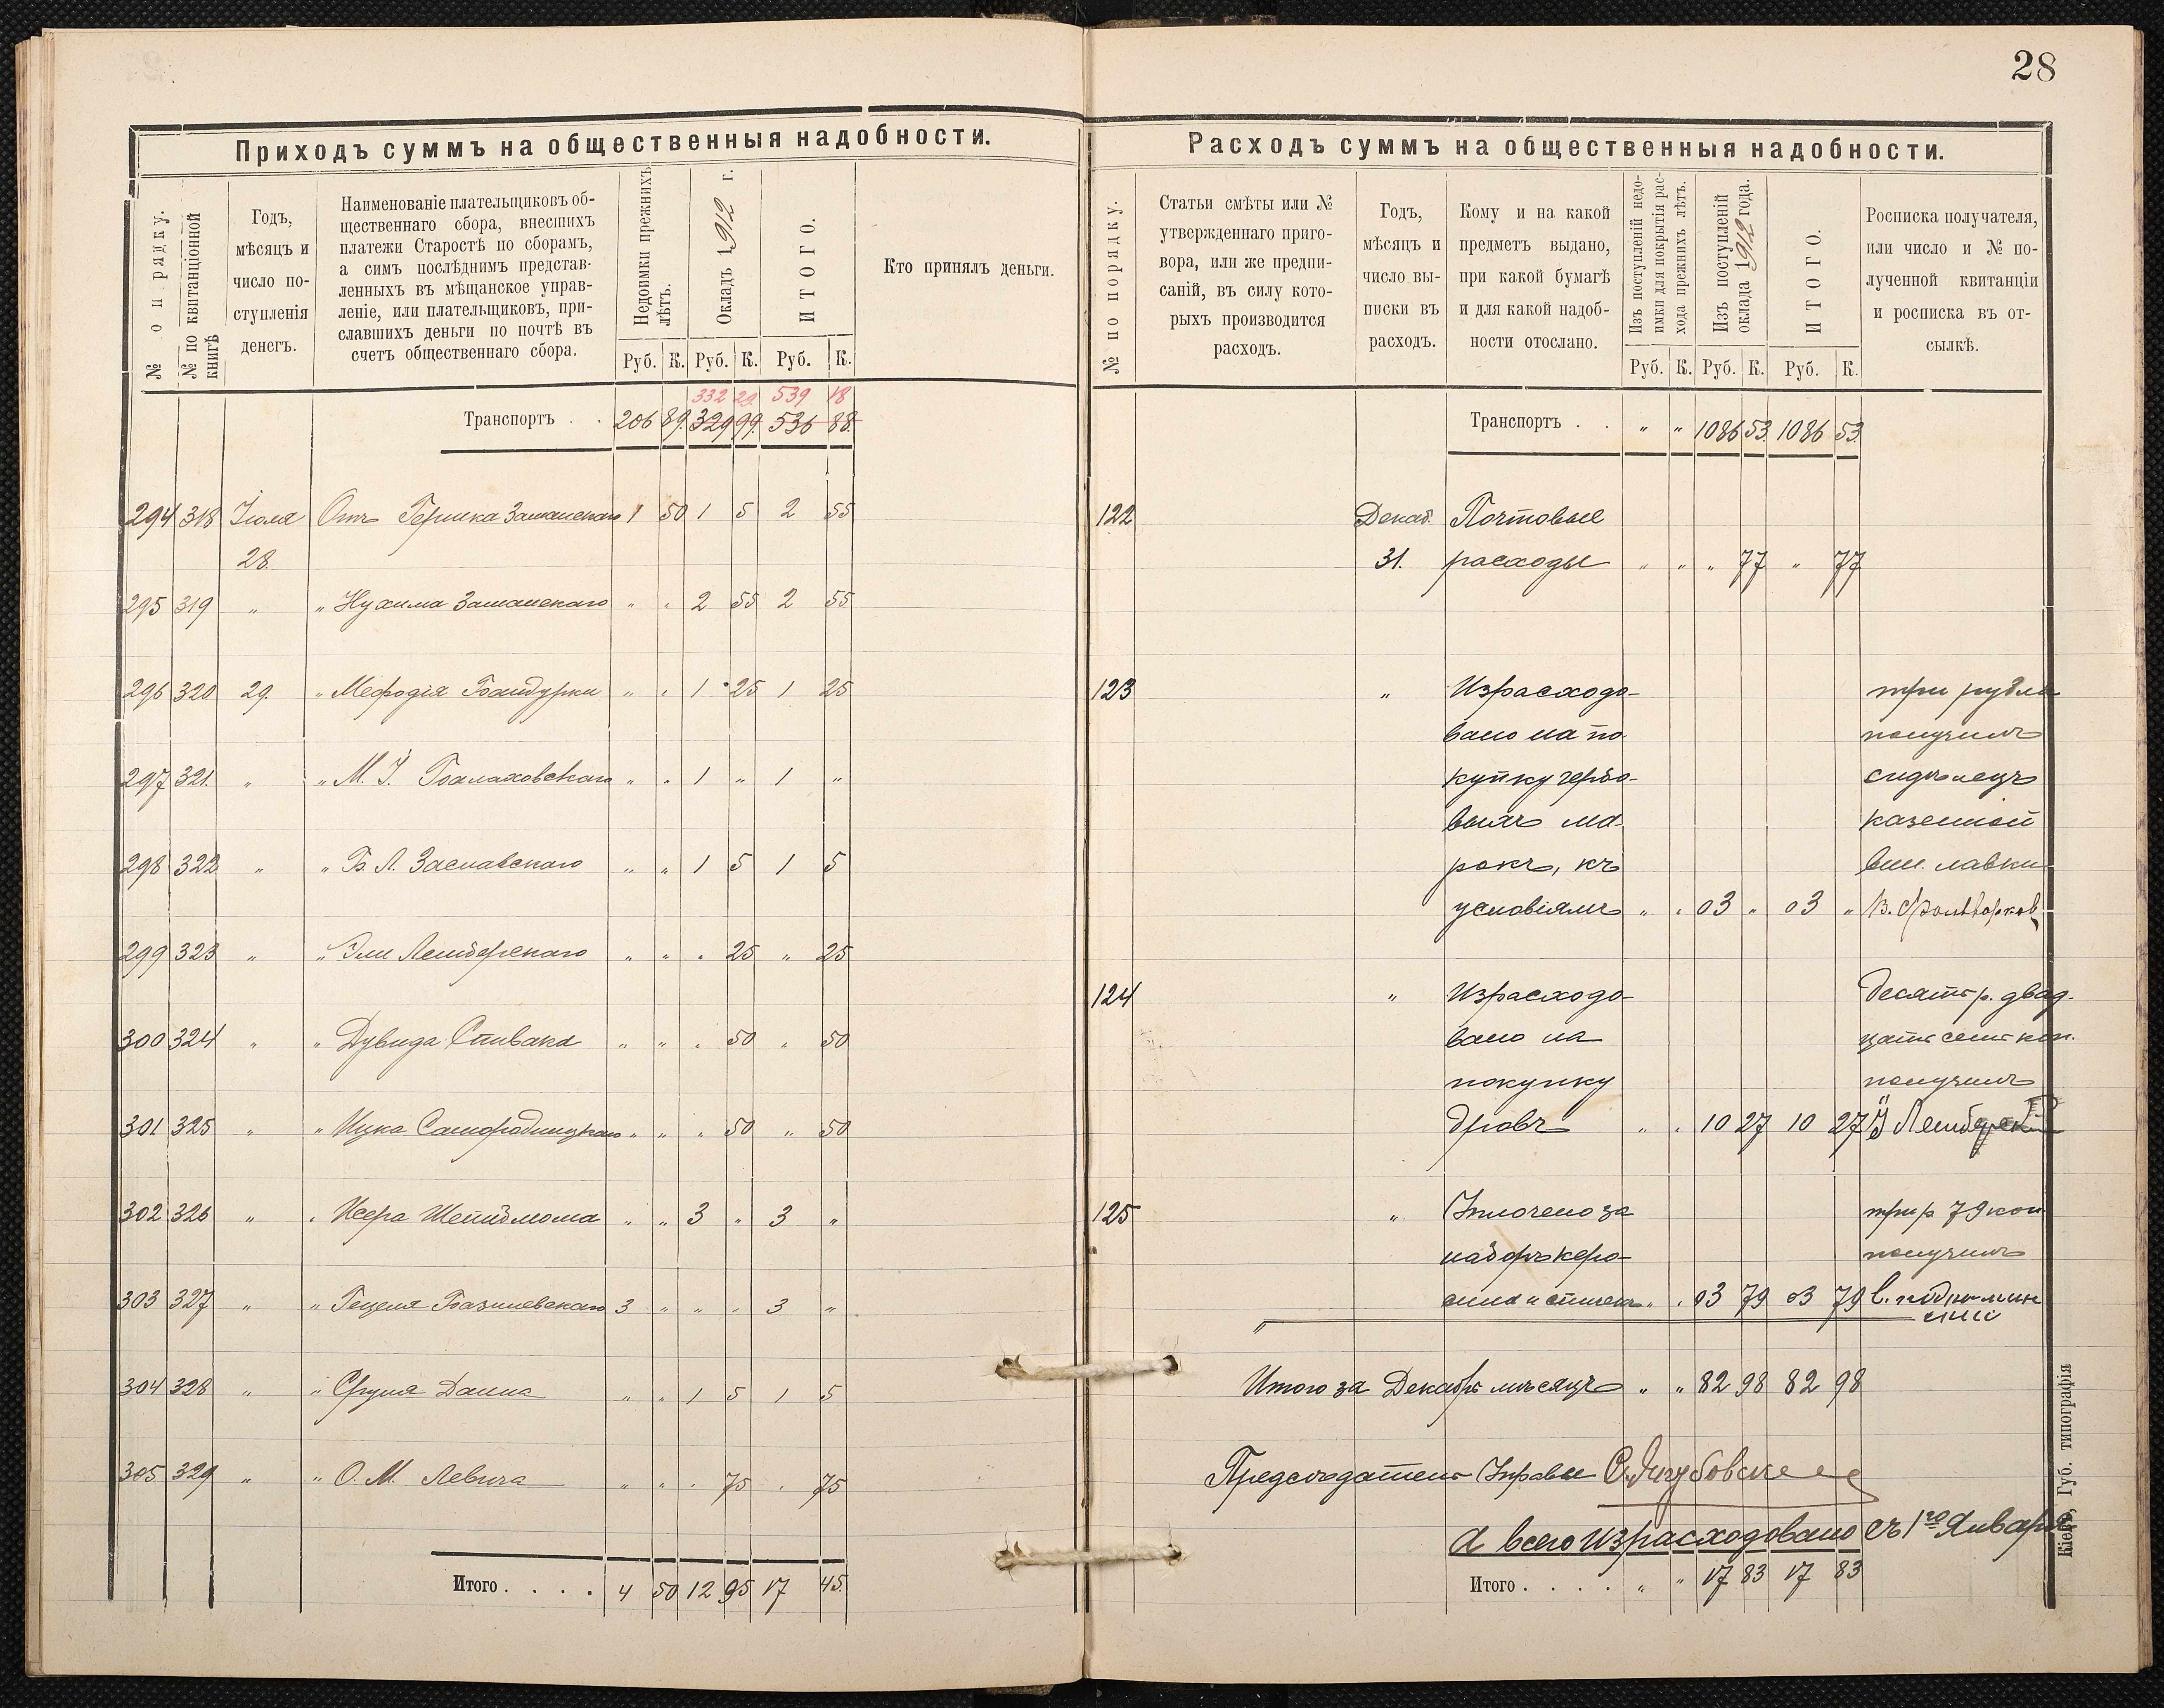 28
Приходъ суммъ на общественныя надобности.
№ по порядку.
№ по квитанціонной книгѣ
Годъ,
мѣсяцъ и
число по-
ступленія
денегъ.
Наименованіе плательщиковъ об-
щественнаго сбора, внесшихъ
платежи Старостѣ по сборамъ,
а симъ послѣднимъ представ-
ленныхъ въ мѣщанское управ-
леніе, или плательщиковъ, при-
славшихъ деньги по почтѣ въ
счетъ общественнаго сбора.
Недоимки прежнихъ
лѣтъ.
Окладъ 1912 г.
ИТОГО.
Кто принялъ деньги.
Руб. К. Руб. К. Руб. К.
332 29. 539 18
Транспортъ . . 206 89. 329 99. 536 88.
294 318 Іюля Отъ Гершка Заманскаго 1 50 1 5 2 55
28.
295 319 " " Нухима Заманскаго " " 2 55 2 55
296 320 29. " Мефодія Бандурки " " 1 25 1 25
297 321. " " М. І. Балаховскаго " " 1 " 1 "
298 322 " " Б. Л. Заславскаго " " 1 5 1 5
299 323 " " Эли Лемберскаго " " " 25 " 25
300 324 " " Дувида Спивака " " " 50 " 50
301 325 " " Ицка Самородницкаго " " " 50 " 50
302 326 " " Исера " " 3 " 3 "
303 327 " " Гецеля Базилевскаго 3 " " " 3 "
304 328 " " " " 1 5 1 5
305 329 " " О. М. Левича " " " 75 " 75
Итого . . . . 4 50 12 95 17 45.
Расходъ суммъ на общественныя надобности.
№ по порядку.
Статьи смѣты или №
утвержденнаго приго-
вора, или же предпи-
саній, въ силу кото-
рыхъ производится
расходъ.
Годъ,
мѣсяцъ и
число вы-
писки въ
расходъ.
Кому и на какой
предметъ выдано,
при какой бумагѣ
и для какой надоб-
ности отослано.
Изъ поступленій недо-
имки для покрытія рас-
хода прежнихъ лѣтъ.
Изъ поступленій
оклада 1912 года.
ИТОГО.
Росписка получателя,
или число и № по-
лученной квитанціи
и росписка въ от-
сылкѣ.
Руб. К. Руб. К. Руб. К.
Транспортъ . . " " 1086 53. 1086 53.
122 Декаб. Почтовые
31. расходы " " " 77 " 77
123 " Израсходо- три рубля
вано на по- получилъ
купку гербо- сидѣлецъ
выхъ ма- казенной
рокъ, къ вин. лавки
условіямъ " " 03 " 03 "
124 " Израсходо- Десять р. двад-
вано на цать семь коп.
покупку получилъ
дровъ " " 10 27 10 27 Лемберскій
125 " Уплочено за три р 79 коп
наборъ керо- получилъ
сина и спичекъ " " 03 79 03 79
Итого за Декабрь мѣсяцъ " " 82 98 82 98
Предсѣдатель Управы
А всего израсходовано съ 1го Января
Итого . . . . " " 17 83 17 83
Кіевъ, Губ. типографія